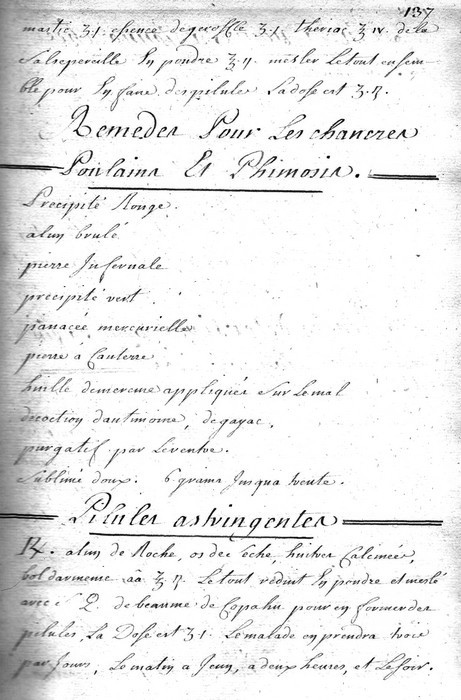 137
mastic ʒ.1 essence degerofle ʒ.1 theria. ʒ iv. de la
Salsepereille En poudre ʒ.ij. mesler Letout ensem
ble pour En faire des pilules La dose est ʒ.ij.
Remedes Pour Les chancres
Poulains Et Phimosis.
Precipité Rouge.
alun brulé
pierre Infernale
precipité vert
panacée mercurielle
pierre à Cauterre
huille demercure appliquée Sur Lemal
decoction dantimoine, degayac.
purgatif par Leventre.
Sublimé doux. 6 grains Jusqua trente.
Pilules astringentes
℞. alun de Roche, os de seche, huitres Calcinées,
bol darmenie aã ʒ ij. Letout reduit En poudre et meslé
avec de beaume de Copahu pour en former des
pilules, La Dose est ʒ1. Lemalade en prendra trois
par Jours, Le matin a Jeun, a deux heures, et Lesoir.